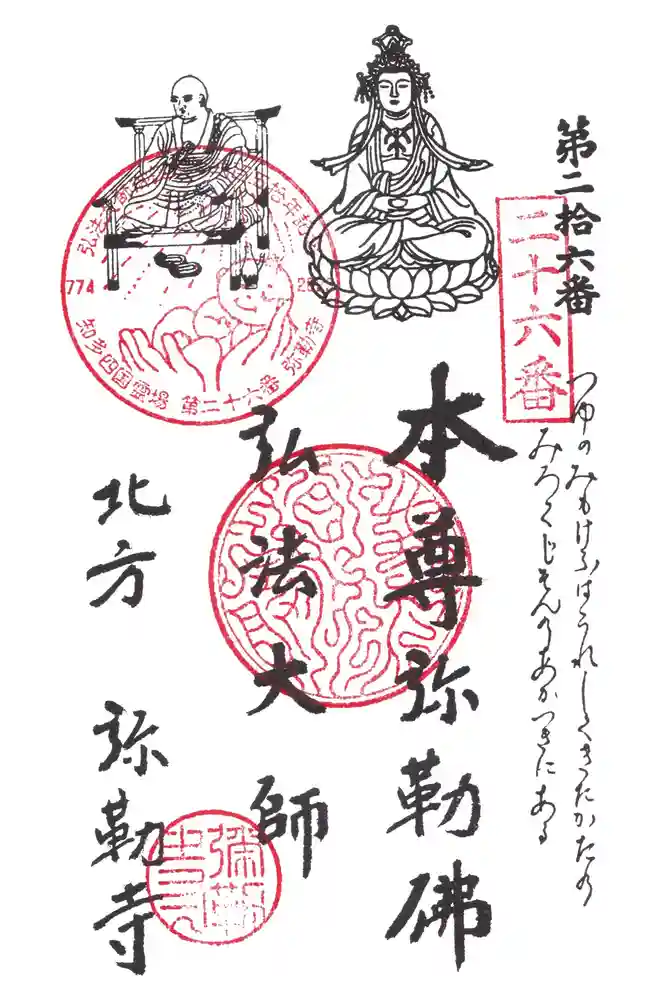 第二拾六番
二十六番
つゆのみもけふはうれしきたかたの
みろくじそんのあかつきにある
本尊弥勒佛
弘法大師
北方 弥勒寺
774
知多四国霊場 第二十六番 弥勒寺